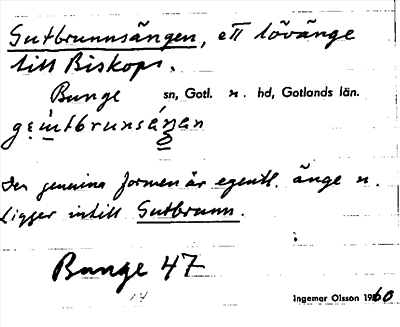 Gutbrunnsängen, ett lövänge
till Biskops.
Bunge sn, Gotl. n. hd, Gotlands län.
Den genuina formen är egentl. änge n.
Ligger intill Gutbrunn.
Bunge 47
14 Ingemar Olsson 1960